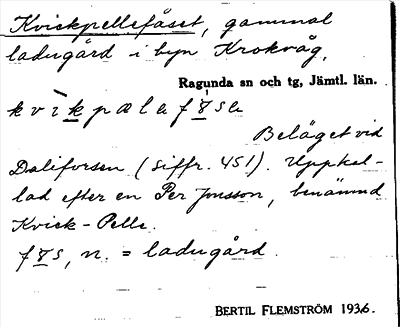 Kvickpellefäset, gammal
ladugård i byn Krokvåg,
Ragunda sn och tg, Jämtl. län.
kvìkpælafɤsa
Beläget vid
Daliforsen (siffr. 451). Uppkal-
lad efter en Per Jonsson, benämnd
Kvick-Pelle.
fɤs, n. = ladugård.
BERTIL FLEMSTRÖM 1936.